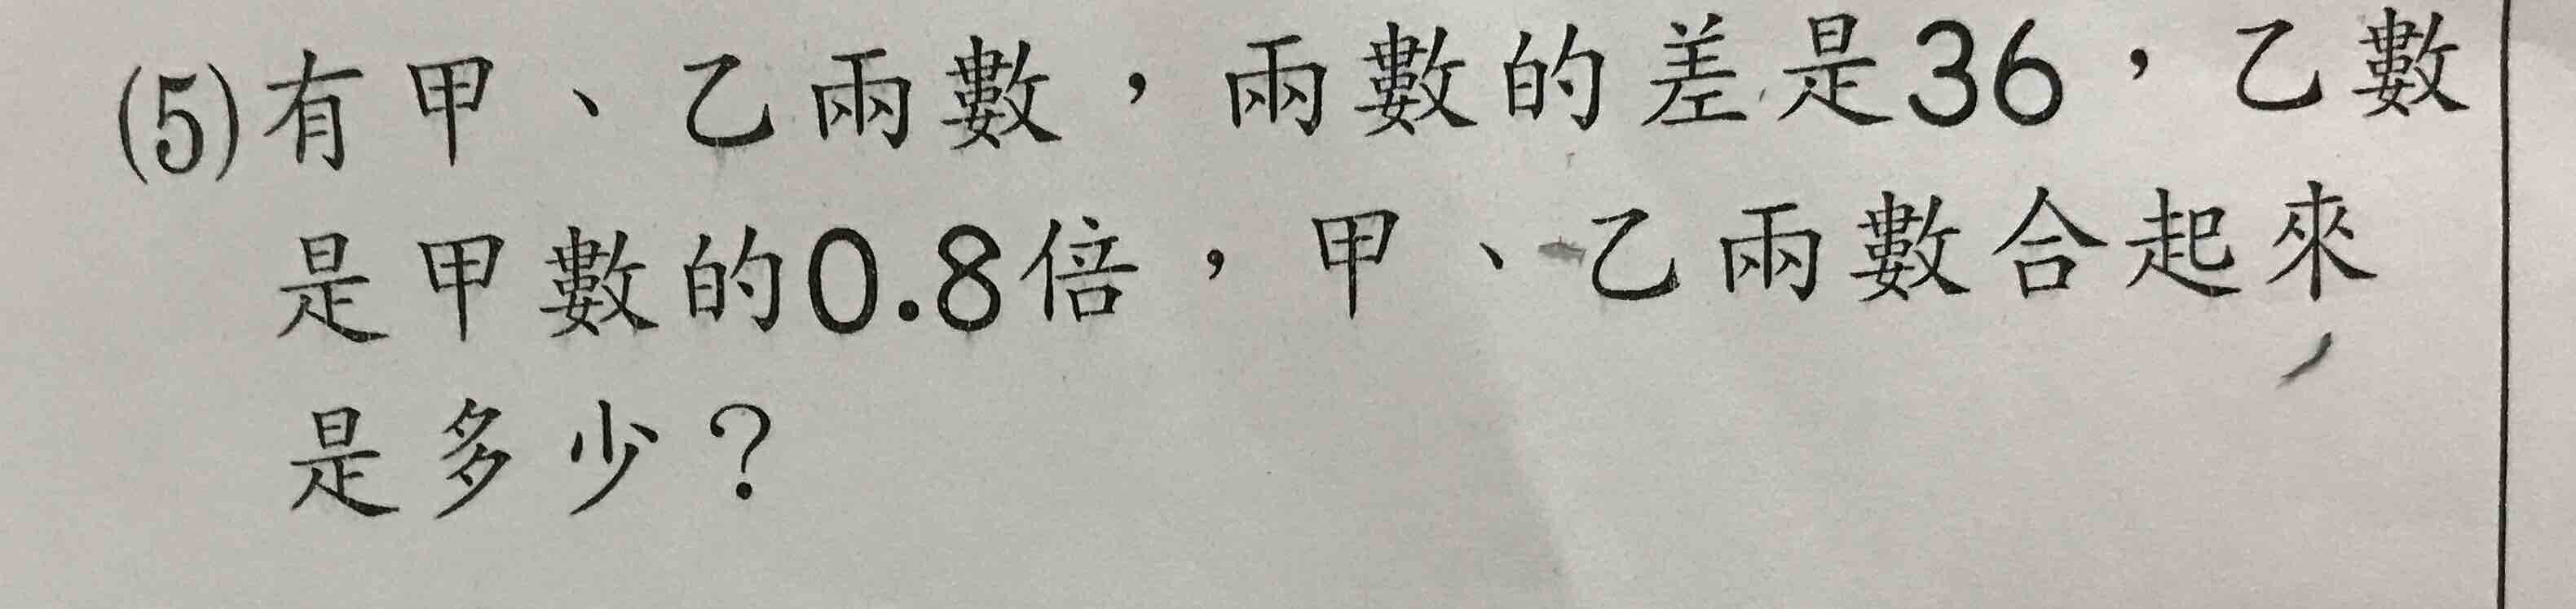 (5)有甲、乙兩數，兩數的差是36，乙數
是甲數的0.8倍，甲、乙兩數合起來
是多少？